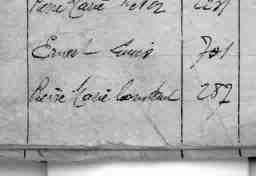 Pierre Marie
Ernest Louis 701
Pierre Marie Constant 287